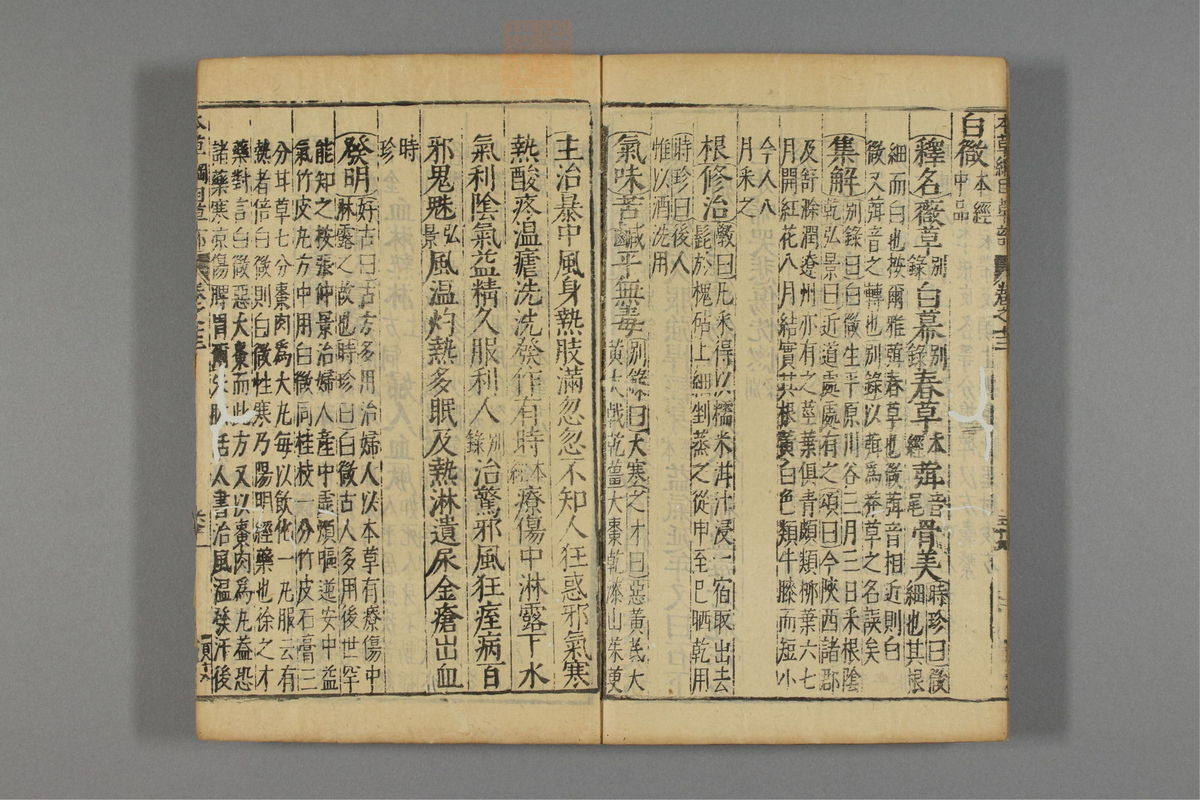 白微本經中品
釋名薇草別錄白幕別錄春草本經葞音尾骨美時珍曰微細也其根
細而白也按爾雅葞春草也微葞音相近則白
微又葞音之轉也別錄以葞爲莽草之名誤矣
集解別錄曰白微生平原川谷三月三日采根陰
乾弘景曰近道處處有之頌曰今陝西諸郡
及舒滁潤遼州亦有之莖葉俱青頗類柳葉六七
月開紅花八月結實其根黃白色類牛膝而短小
今人八
月采之
根修治斆曰凡采得以糯米泔汁浸一宿取出去
髭於槐砧上細剉蒸之從申至巳晒乾用
時珍曰後人
惟以酒洗用
氣味苦鹹平無毒別錄曰大寒之才曰惡黃芪大
黃大戟乾薑大棗乾漆山茱萸
主治暴中風身熱肢滿忽忽不知人狂惑邪氣寒
熱酸疼温瘧洗洗發作有時本經療傷中淋露下水
氣利陰氣益精久服利人別錄治驚邪風狂痓病百
邪鬼魅弘景風温灼熱多眠及熱淋遺尿金瘡出血
時珍
發明好古曰古方多用治婦人以本草有療傷中
淋露之故也時珍曰白微古人多用後世罕
能知之按張仲景治婦人產中虛煩嘔逆安中益
氣竹皮丸方中用白微同桂枝一分竹皮石膏三
分甘草七分棗肉爲大丸每以飲化一丸服云有
熱者倍白微則白微性寒乃陽明經藥也徐之才
藥對言白微惡大棗而此方又以棗肉爲丸蓋恐
諸藥寒凉傷脾胃爾朱肱活人書治風温發汗後